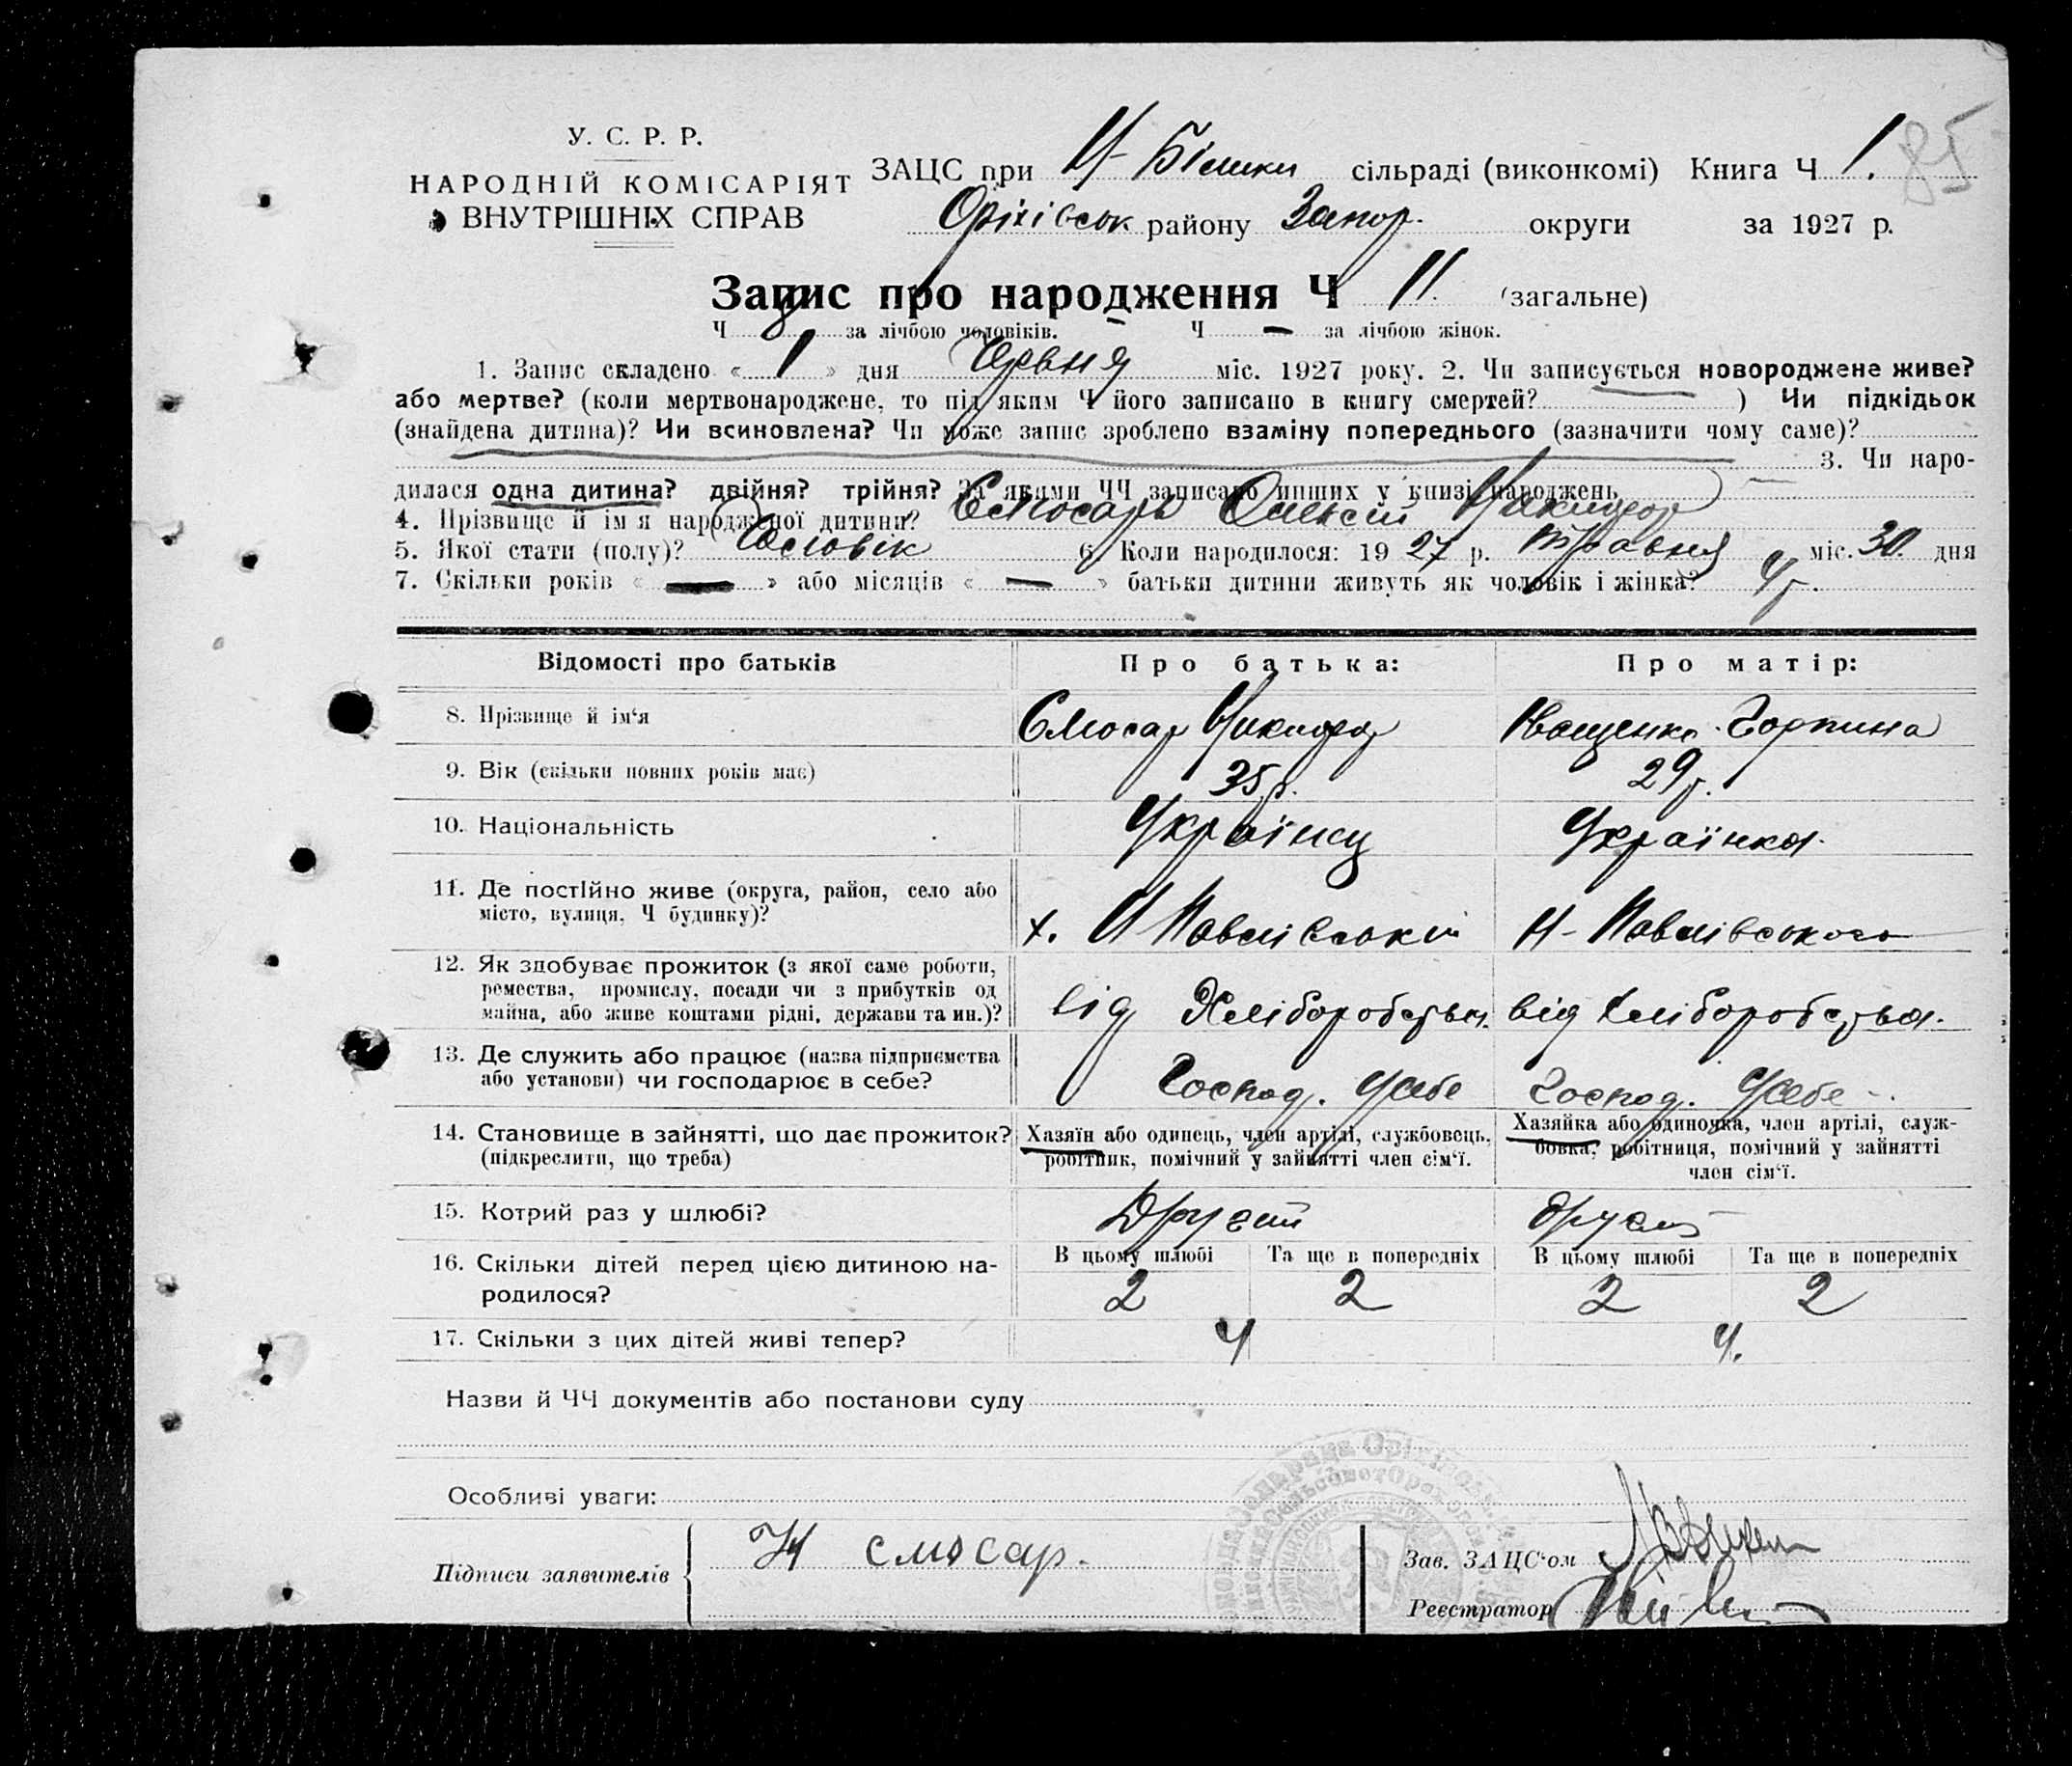 У. С. Р. Р.
НАРОДНІЙ КОМІСАРІЯТ
ВНУТРІШНІХ СПРАВ
ЗАЦС при Н-Білики сільраді (виконкомі) Книга Ч 1. 85
Оріхівськ району Запор. округи за 1927 р.
Запис про народження Ч 11. (загальне)
Ч 8 за лічбою чоловіків. Ч — за лічбою жінок.
1. Запис складено « 1 » дня Червня міс. 1927 року. 2. Чи записується новороджене живе?
або мертве? (коли мертвонароджене, то під яким Ч його записано в книгу смертей? ) Чи підкідьок
(знайдена дитина)? Чи всиновлена? Чи може запис зроблено взаміну попереднього (зазначити чому саме)?
3. Чи наро-
дилася одна дитина? двійня? трійня? За якими ЧЧ записано инших у книзі народжень —
4. Прізвище й ім'я народженої дитини? Слюсарь Олексій Никифор
5. Якої стати (полу)? Чоловік 6. Коли народилося: 1927 р. травня міс. 30. дня
7. Скільки років « — » або місяців « — » батьки дитини живуть як чоловік і жінка? 4 р.
Відомості про батьків Про батька: Про матір:
8. Прізвище й ім‘я Слюсар Никифор Іващенко Горпина
9. Вік (скільки повних років має) 35 р. 29 р.
10. Національність Українец Українка.
11. Де постійно живе (округа, район, село або
місто, вулиця, Ч будинку)? х. Н Павлівський Н-Павлівського
12. Як здобуває прожиток (з якої саме роботи,
ремества, промислу, посади чи з прибутків од
майна, або живе коштами рідні, держави та ин.)? від Хліборобства. від хліборобства.
13. Де служить або працює (назва підприємства
або установи) чи господарює в себе? Господ. Усебе Господ. Усебе
14. Становище в зайнятті, що дає прожиток? Хазяїн або одинець, член артілі, службовець, Хазяйка або одиночка, член артілі, служ-
(підкреслити, що треба) робітник, помічний у зайнятті член сім‘ї. бовка, робітниця, помічний у зайнятті
член сім‘ї.
15. Котрий раз у шлюбі? Другий другий
16. Скільки дітей перед цією дитиною на- В цьому шлюбі Та ще в попередніх В цьому шлюбі Та ще в попередніх
родилося? 2 2 2 2
17. Скільки з цих дітей живі тепер? 4 4.
Назви й ЧЧ документів або постанови суду
Особливі уваги:
Підписи заявителів Н слюсар.
Зав. ЗАЦС‘ом
Реєстратор